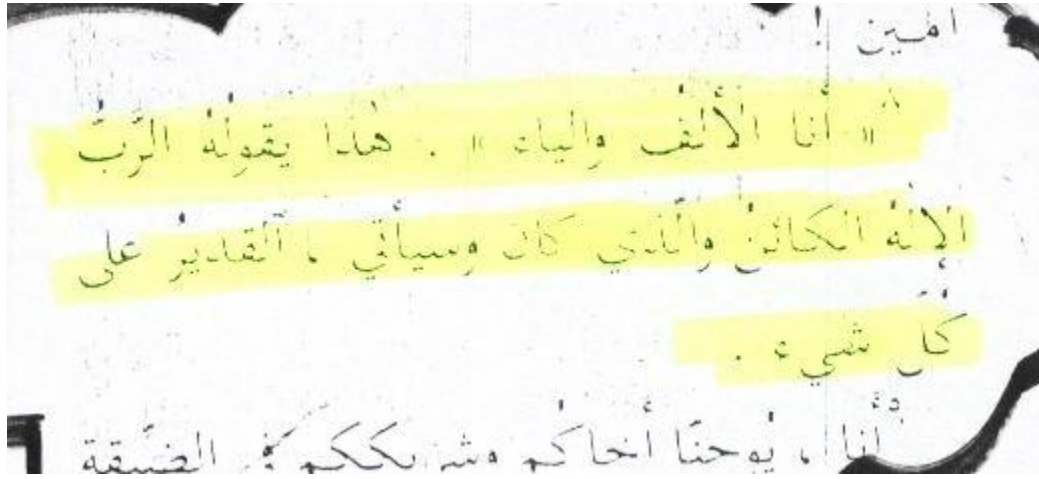 امين !
٨ « أنا الأَلف والياء » . هٰذا يقولُهُ الرَّبُّ
الإِلهُ الكائنُ والَّذي كان وسيأْتي ، القديرُ على
كُلِّ شيء .
٩ أَنا ، يُوحنَّا أَخاكُم وشريكَكم في الضِّيقة